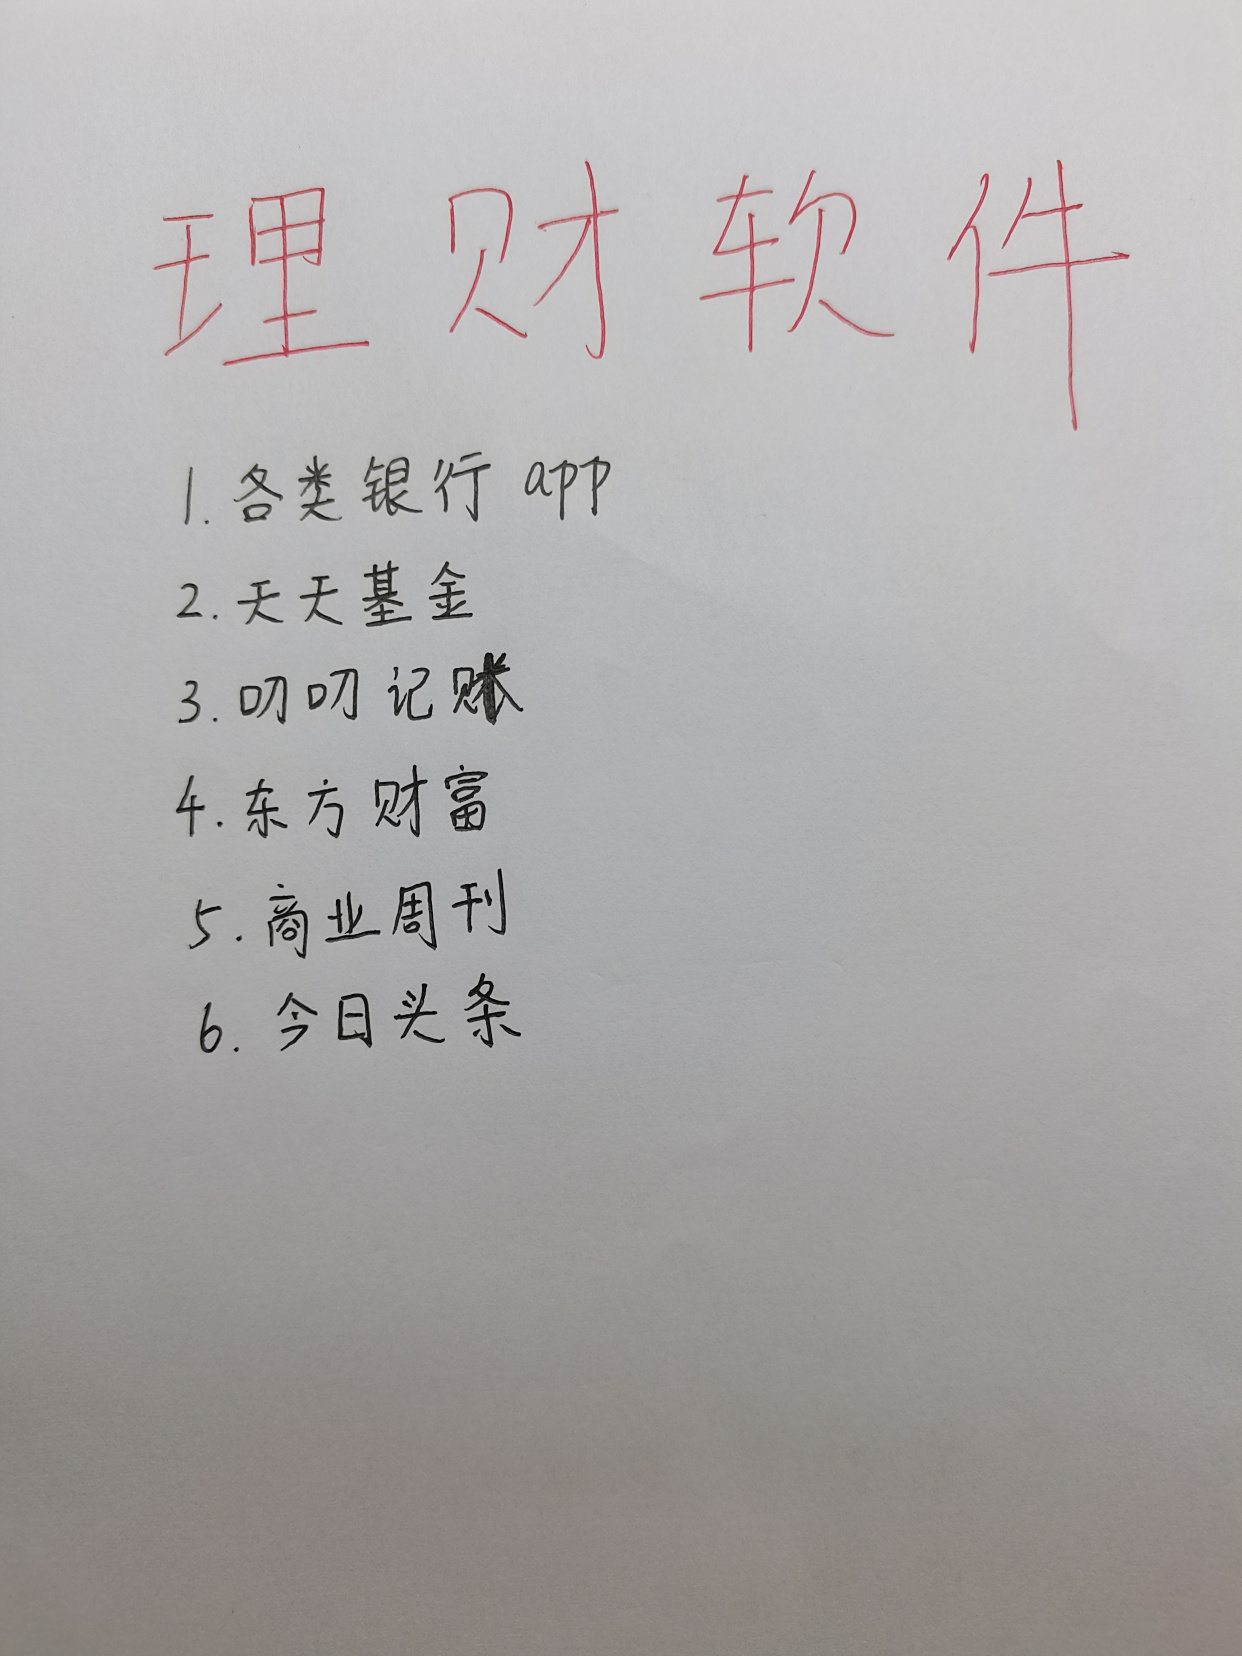 理财软件
1. 各类银行 app
2. 天天基金
3. 叨叨记账
4. 东方财富
5. 商业周刊
6. 今日头条